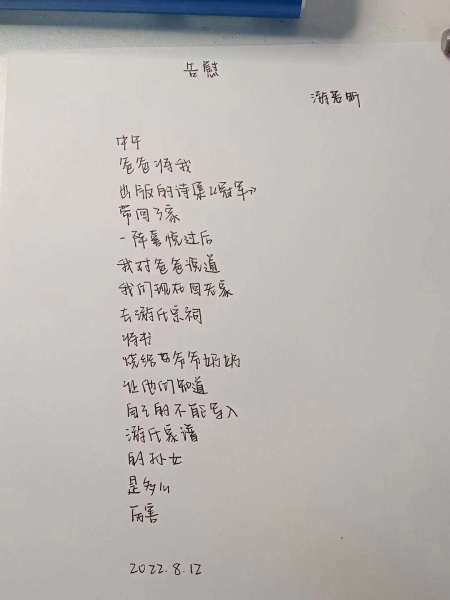 告慰
游若昕
中午
爸爸将我
出版的诗集《冠军》
带回了家
一阵喜悦过后
我对爸爸说道
我们现在回老家
去游氏宗祠
将书
烧给爷爷奶奶
让他们知道
自己的不能写入
游氏家谱
的孙女
是多么
厉害
2022.8.12